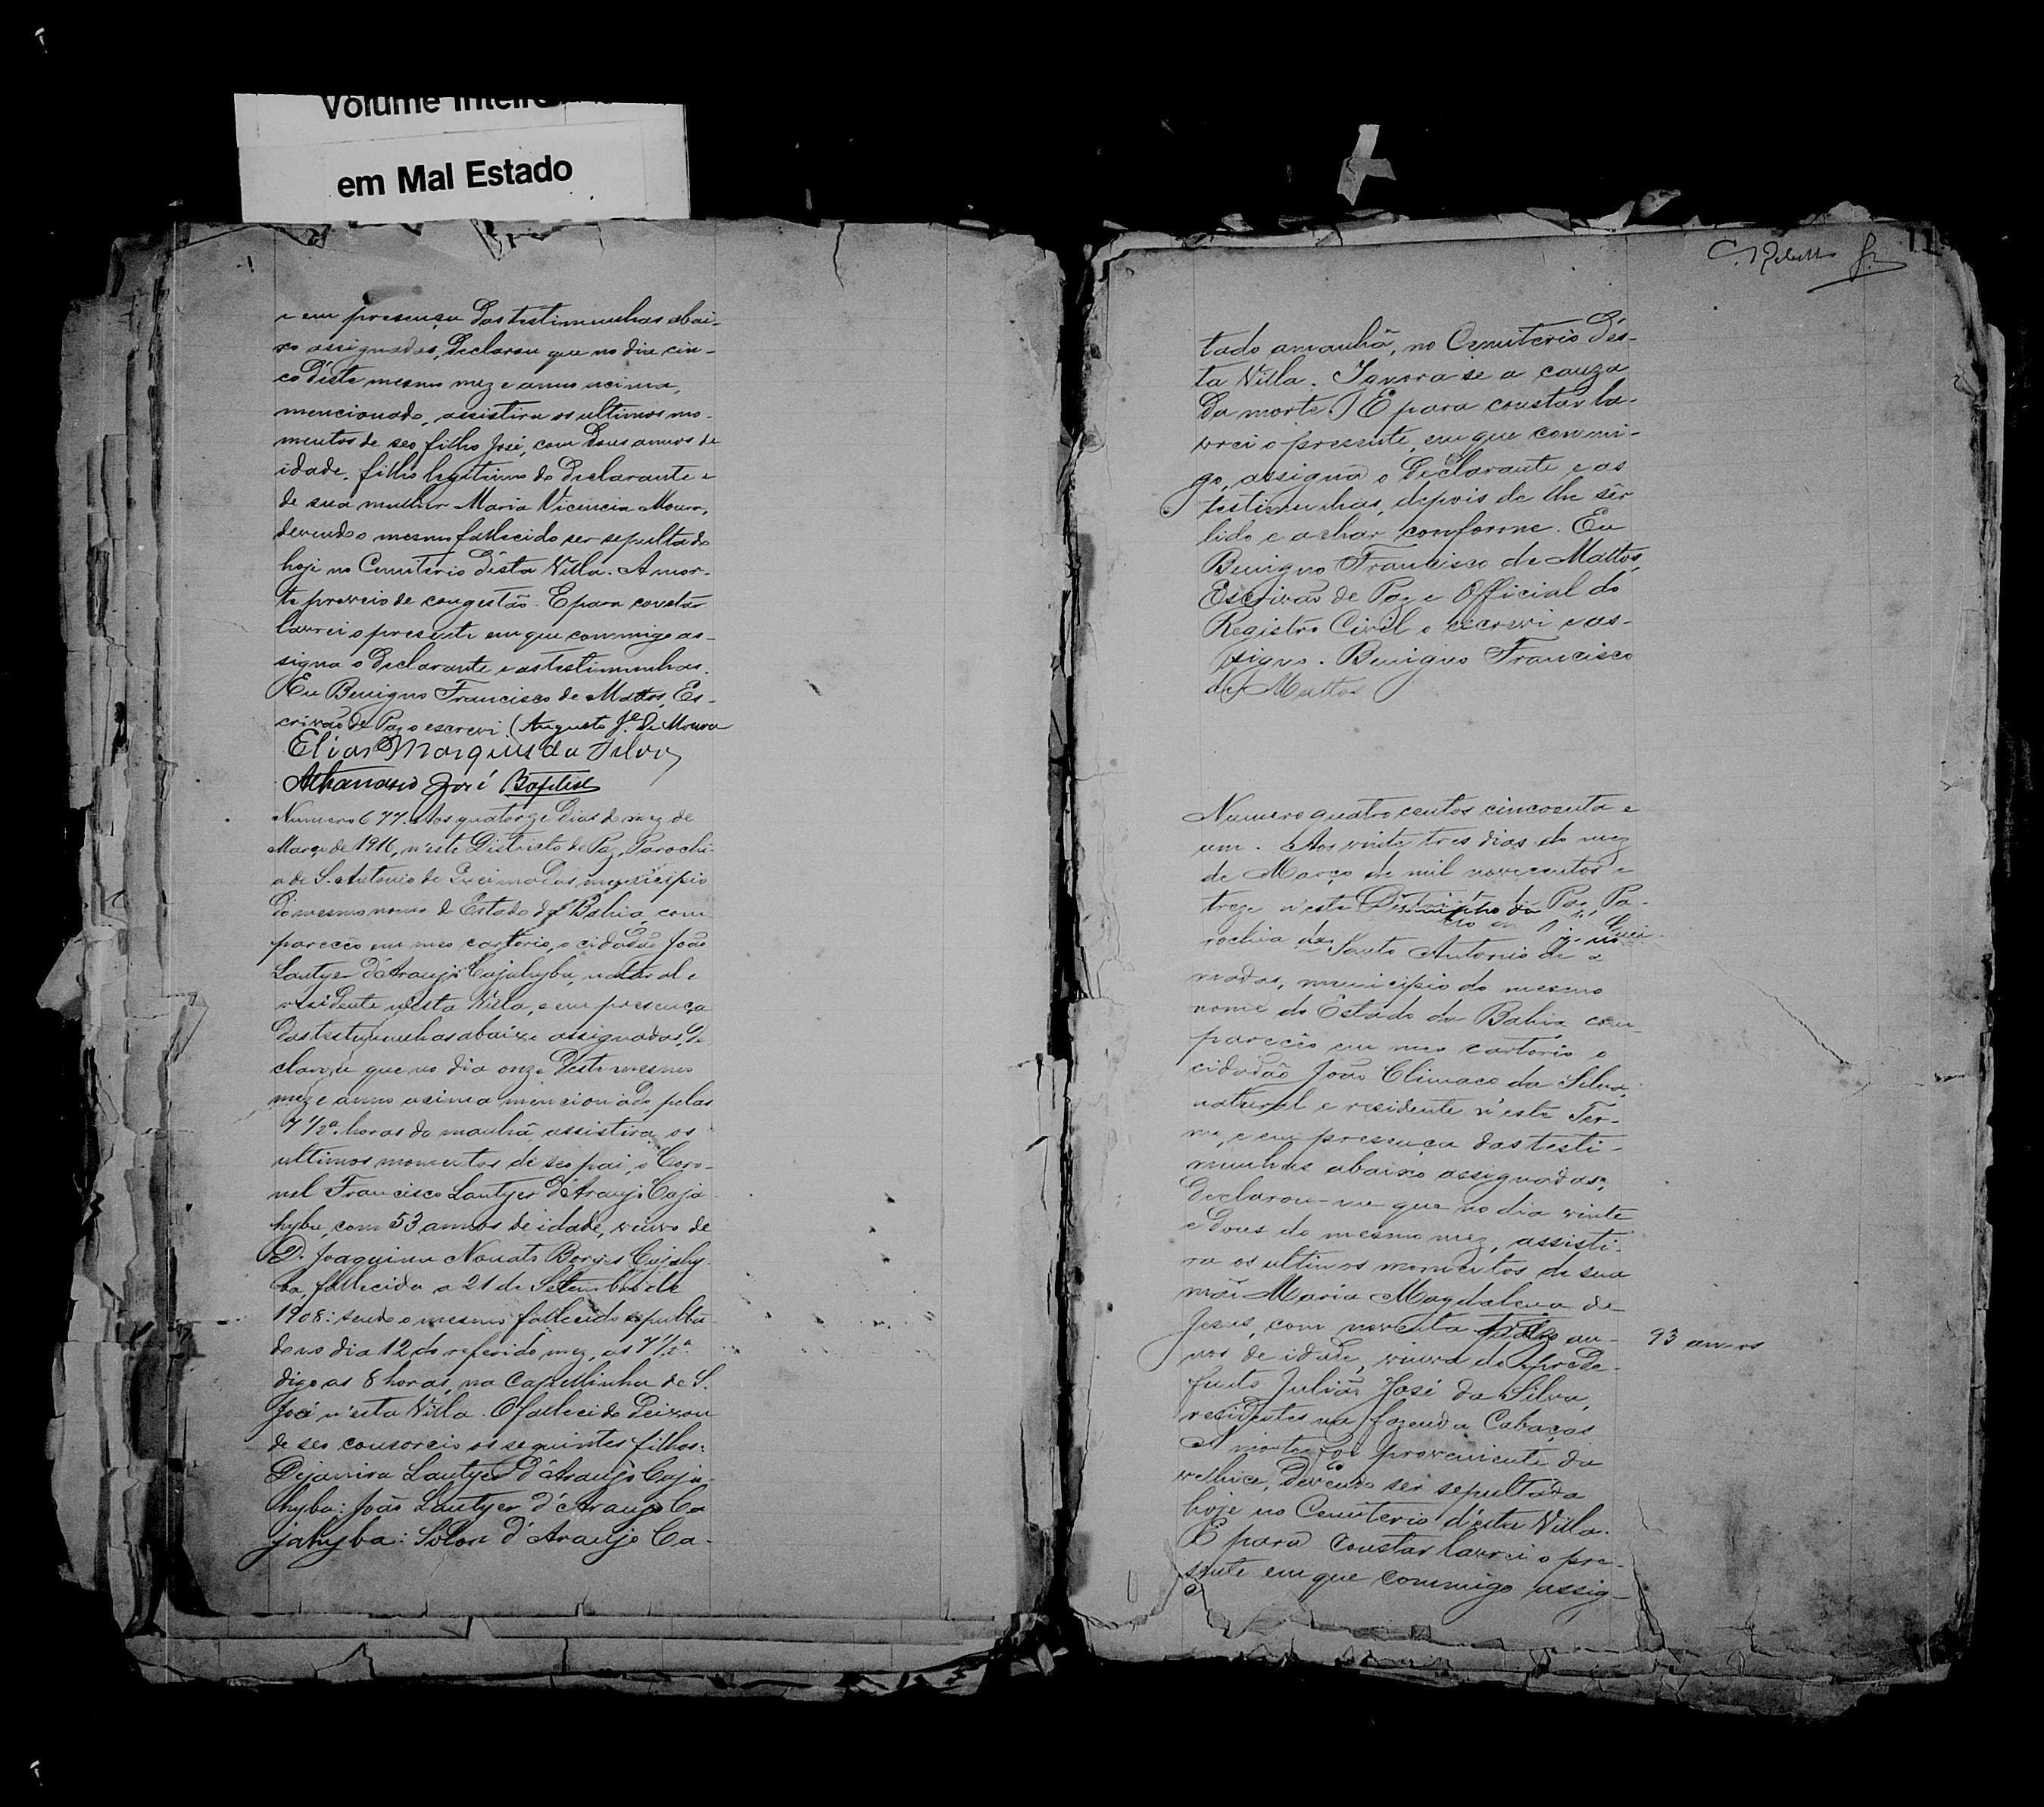 em Mal Estado
e em presença das testimunhas abai-
xo assignadas, declarou que no dia cin-
co d'este mesmo mez e anno acima,
mencionado, assistira os ultimos mo-
mentos de seo filho José, com dous annos de
idade, filho legitimo do declarante e
de sua mulher Maria Vicencia Moura,
devendo o mesmo fallecido ser sepultado
hoje no Cemiterio d'esta Villa. A mor-
te proveio de congestão. E para constar
lavrei o presente em que commigo as-
signa o declarante e as testimunhas.
Eu Benigno Francisco de Mattos, Es-
crivão de Paz o escrevi. Augusto Je. de Moura
Elias Marques da Silva
Athanasio José Baptista
Numero 677. Aos quatorze dias do mez de
Março de 1916, n'este Districto de Paz, Parochi-
a de S. Antonio de Queimadas, municipio
do mesmo nome do Estado da Bahia, com
pareceo em meo cartorio, o cidadão João
Lantyer d'Araujo Cajahyba, natural e
residente n'esta Villa, e em presença
das testimunhas abaixo assignadas, de
clarou que no dia onze deste mesmo
mez e anno acima mencionado pelas
7 1/2 horas da manhã, assistira os
ultimos momentos de seo pai, o Coro-
nel Francisco Lantyer d'Araujo Caja-
hyba, com 53 annos de idade, viuvo de
D. Joaquina Nonato Borges Cajahy-
ba, fallecida a 21 de Setembro de
1908: sendo o mesmo fallecido sepulta-
do no dia 12 do referido mez, as 7 1/2
digo as 8 horas, na Capellinha de S.
José n'esta Villa. O fallecido deixou
de seo consorcio os seguintes filhos:
Dejanira Lantyer d'Araujo Caja-
hyba: João Lantyer d'Araujo Ca
jahyba: Solon d'Araujo Ca-
tado amanhã, no Cemiterio d'es-
ta Villa. Ignora-se a cauza
da morte. E para constar la-
vrei o presente, em que commi-
go, assigna o declarante e as
testimunhas, depois de lhe ser
lido e achar conforme. Eu
Benigno Francisco de Mattos,
Escrivão de Paz e Official do
Registro Civil o escrevi e as-
signo. Benigno Francisco
de Mattos
Numero quatro centos cincoenta e
um. Aos vinte tres dias do mez
de Março de mil novecentos e
treze n'este Districto de Paz, Pa-
rochia de Santo Antonio de Quei-
madas, municipio do mesmo
nome do Estado da Bahia com-
pareceo em meo cartorio o
cidadão João Climaco da Silva,
natural e residente n'este Ter-
mo, e em presença das testi-
munhas abaixo assignadas,
declarou-me que no dia vinte
e dous do mesmo mez, assisti-
ra os ultimos momentos de sua
mãi Maria Magdalena de
Jesus, com noventa an- 93 annos
nos de idade, viuva do
Julião José da Silva,
residentes na fazenda Cabaças
A morte foi proveniente da
velhice, devendo ser sepultada
hoje no Cemiterio d'esta Villa.
E para constar lavrei o pre-
sente em que commigo assig-